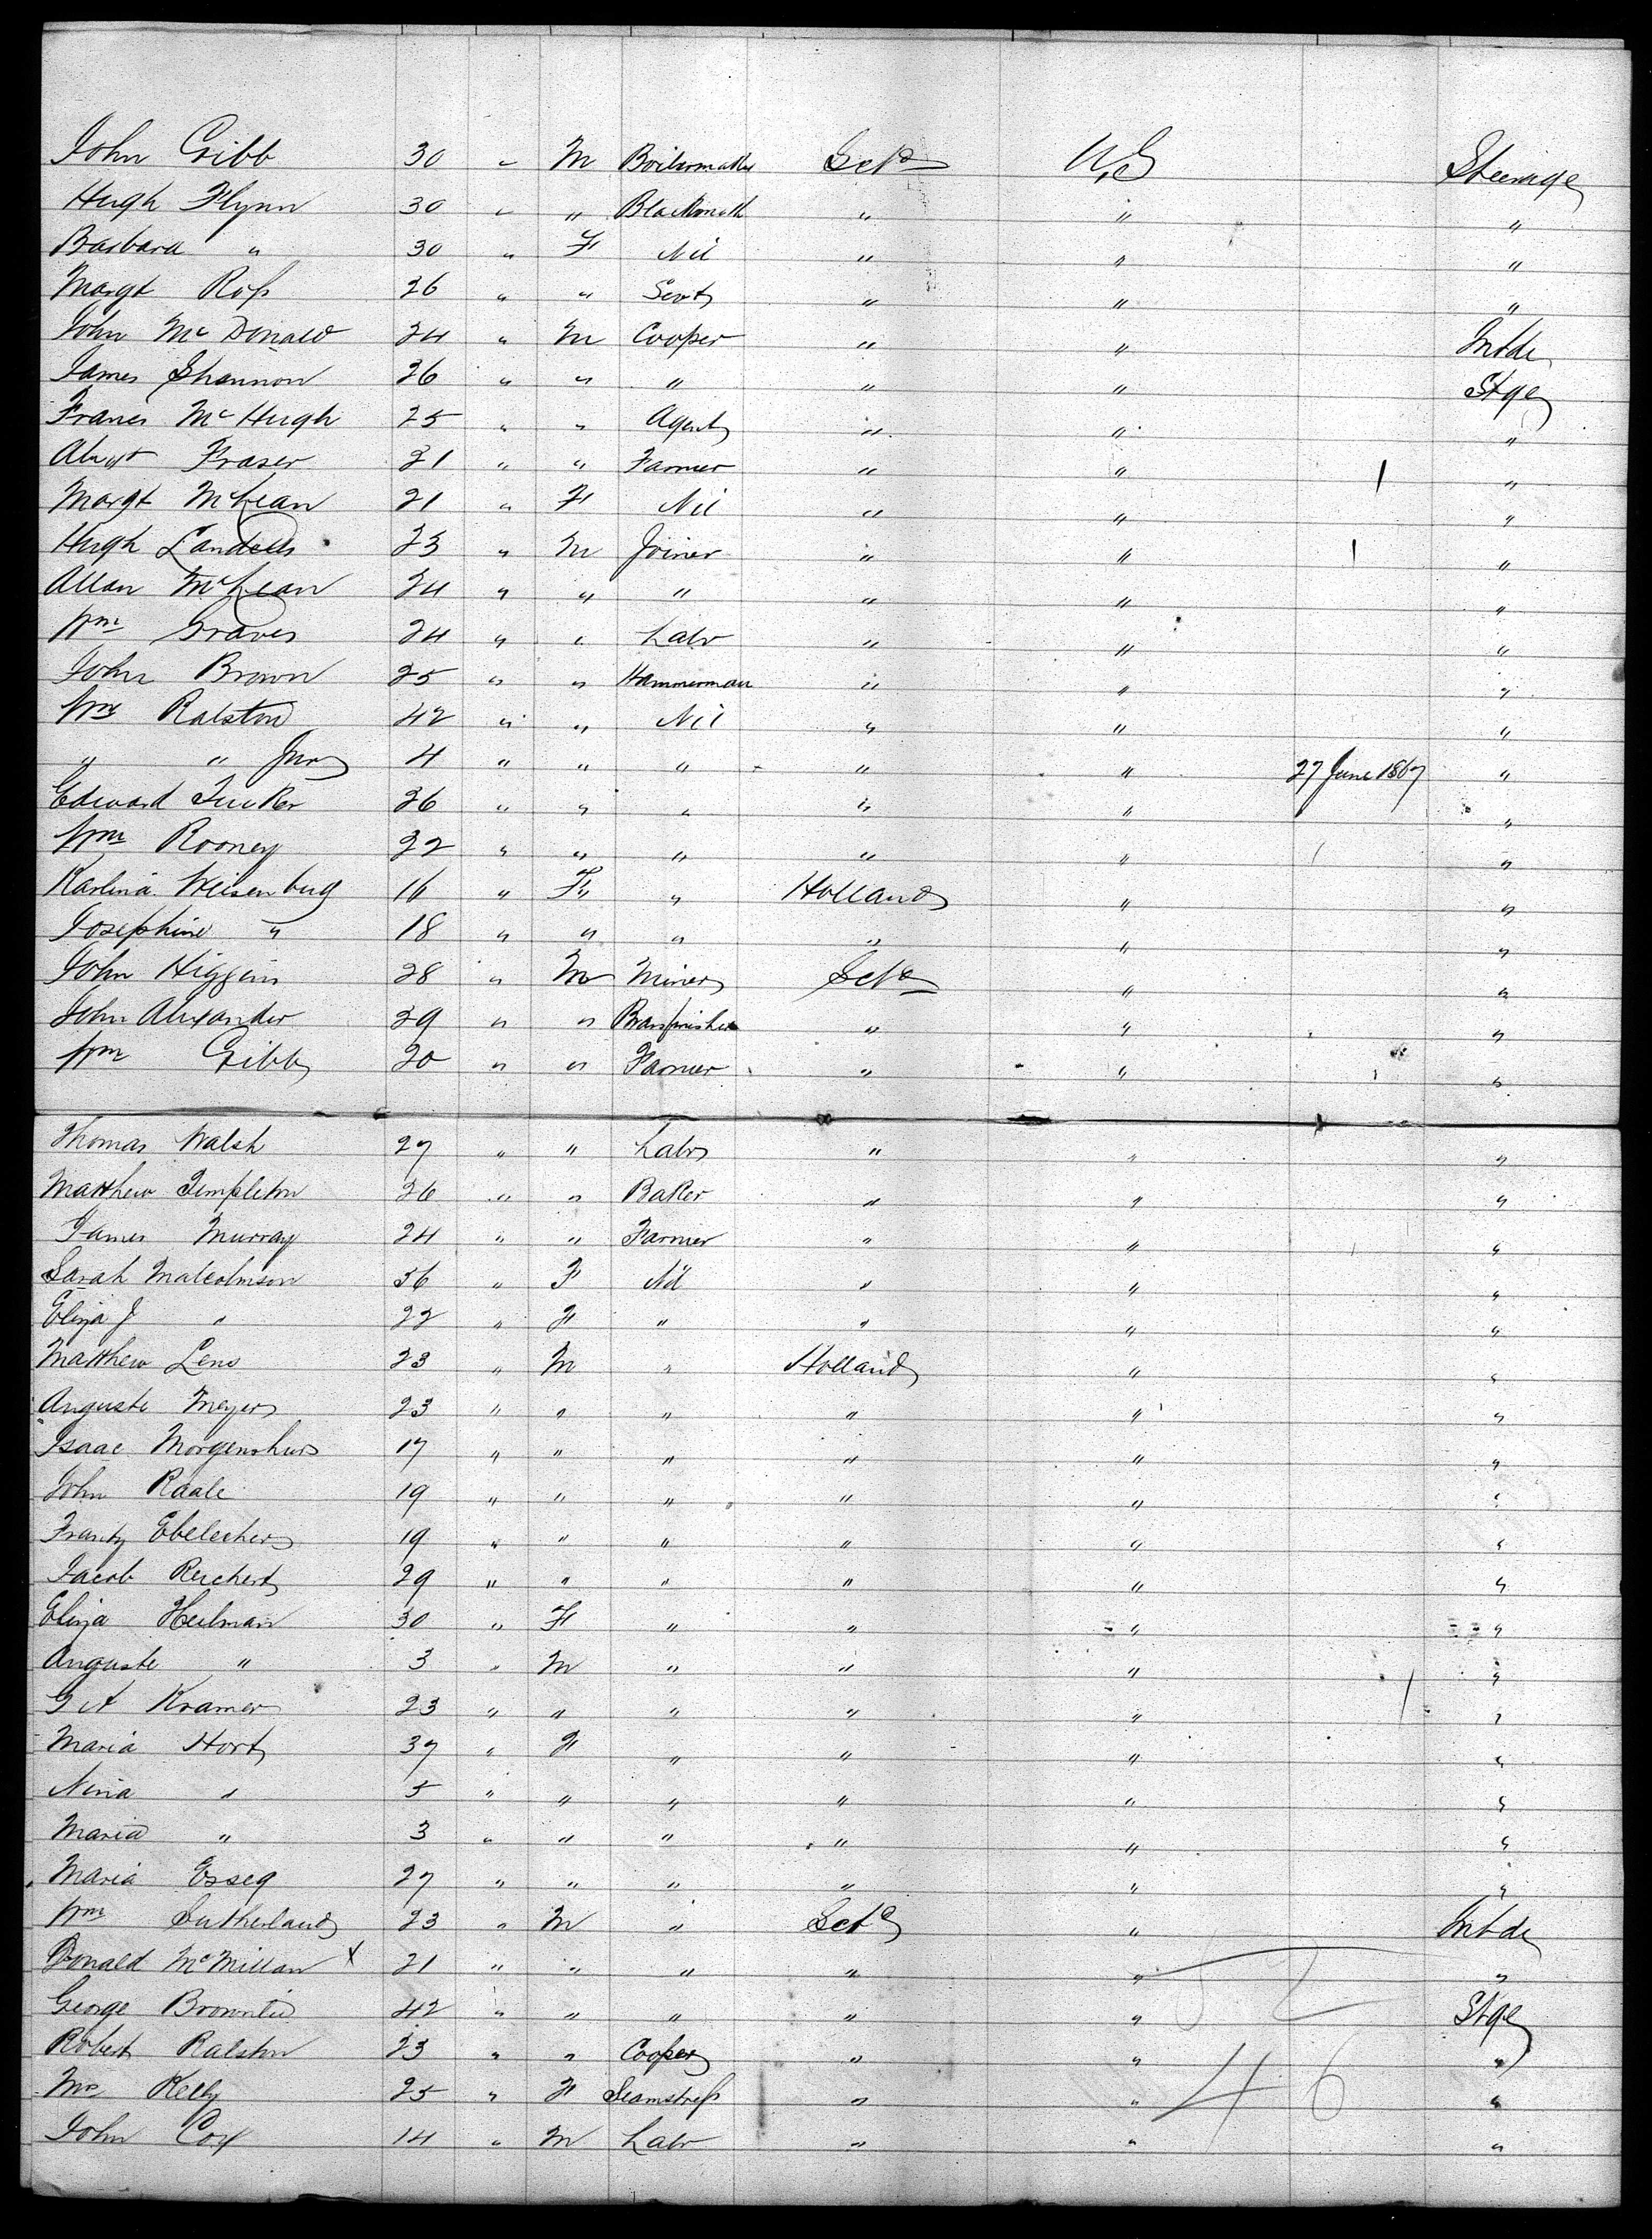 John Gibb 30 " M Boilermaker Sctd U,S Steerage
Hugh Flynn 30 " " Blacksmith " " "
Barbara " 30 " F Nil " " "
Margt Roſs 26 " " Servt " " "
John McDonald 24 " M Cooper " " Intde
James Shannon 26 " " " " " Stge
Frances McHugh 25 " " Agent " " "
Alexr Fraser 21 " " Farmer " " "
Margt McLean 21 " F Nil " " "
Hugh Landells 23 " M Joiner " " "
Allan McLean 24 " " " " " "
Wm Graves 24 " " Labr " " "
John Brown 25 " " Hammerman " " "
Wm Ralston 42 " " Nil " " "
" " Junr 4 " " " " " 27 June 1867 "
Edward Tucker 26 " " " " " "
Wm Rooney 22 " " " " " "
Karlina Weisenbug 16 " F " Holland " "
Josephine " 18 " " " " " "
John Higgins 28 " M Miner Sctd " "
John Alexander 29 " " Braſsfinisher " " "
Wm Gibb 20 " " Farmer " " "
Thomas Walsh 27 " " Labr " " "
Matthew Templeton 26 " " Baker " " "
James Murray 24 " " Farmer " " "
Sarah Malcolmson 56 " F Nil " " "
Eliza J " 22 " F " " " "
Matthew Lens 23 " M " Holland " "
Auguste Meyer 23 " " " " " "
Isaac 17 " " " " " "
John Raale 19 " " " " " "
Frantz 19 " " " " " "
Jacob Reichert 29 " " " " " "
Eliza Heilman 30 " F " " " "
Auguste " 3 " M " " " "
Kramer 23 " " " " " "
Maria Hort 37 " F " " " "
Nina " 5 " " " " " "
Maria " 3 " " " " " "
Maria Esseg 27 " " " " " "
Wm Sutherland 23 " M " Sctd " Intde
Donald McMillan X 21 " " " " " "
George Brownlie 42 " " " " " Stge
Robert Ralston 23 " " Cooper " " "
Mrs Kelly 25 " F Seamstreſs " " 46 "
John Cox 14 " M Labr " " "